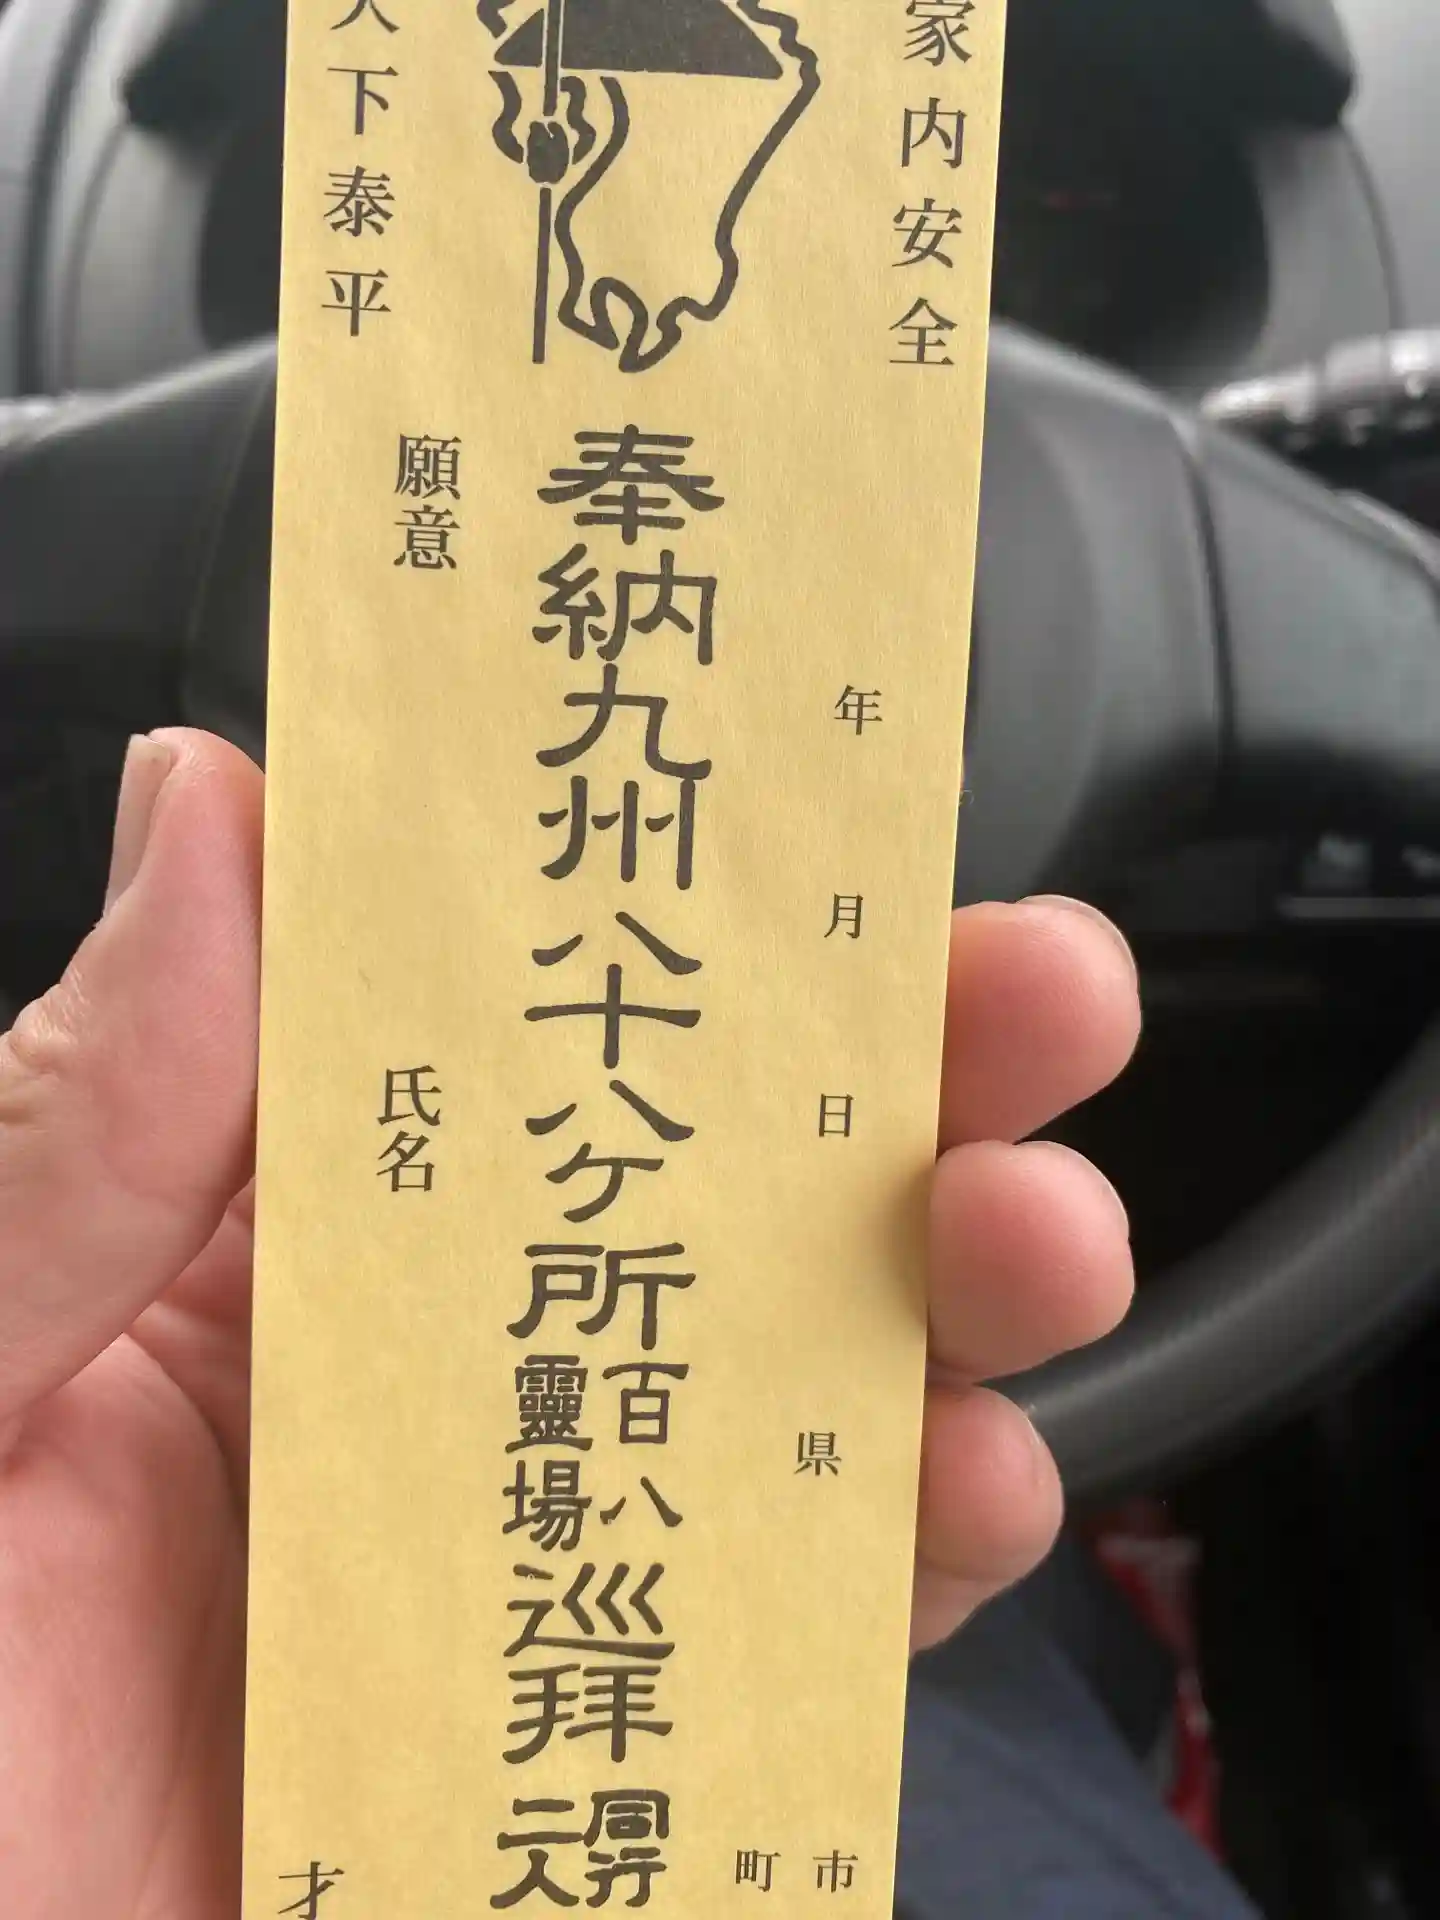 家内安全
年月日
県
市
町
奉納九州八十八ヶ所百八靈場巡拜同行二人
願意
氏名
下泰平
才